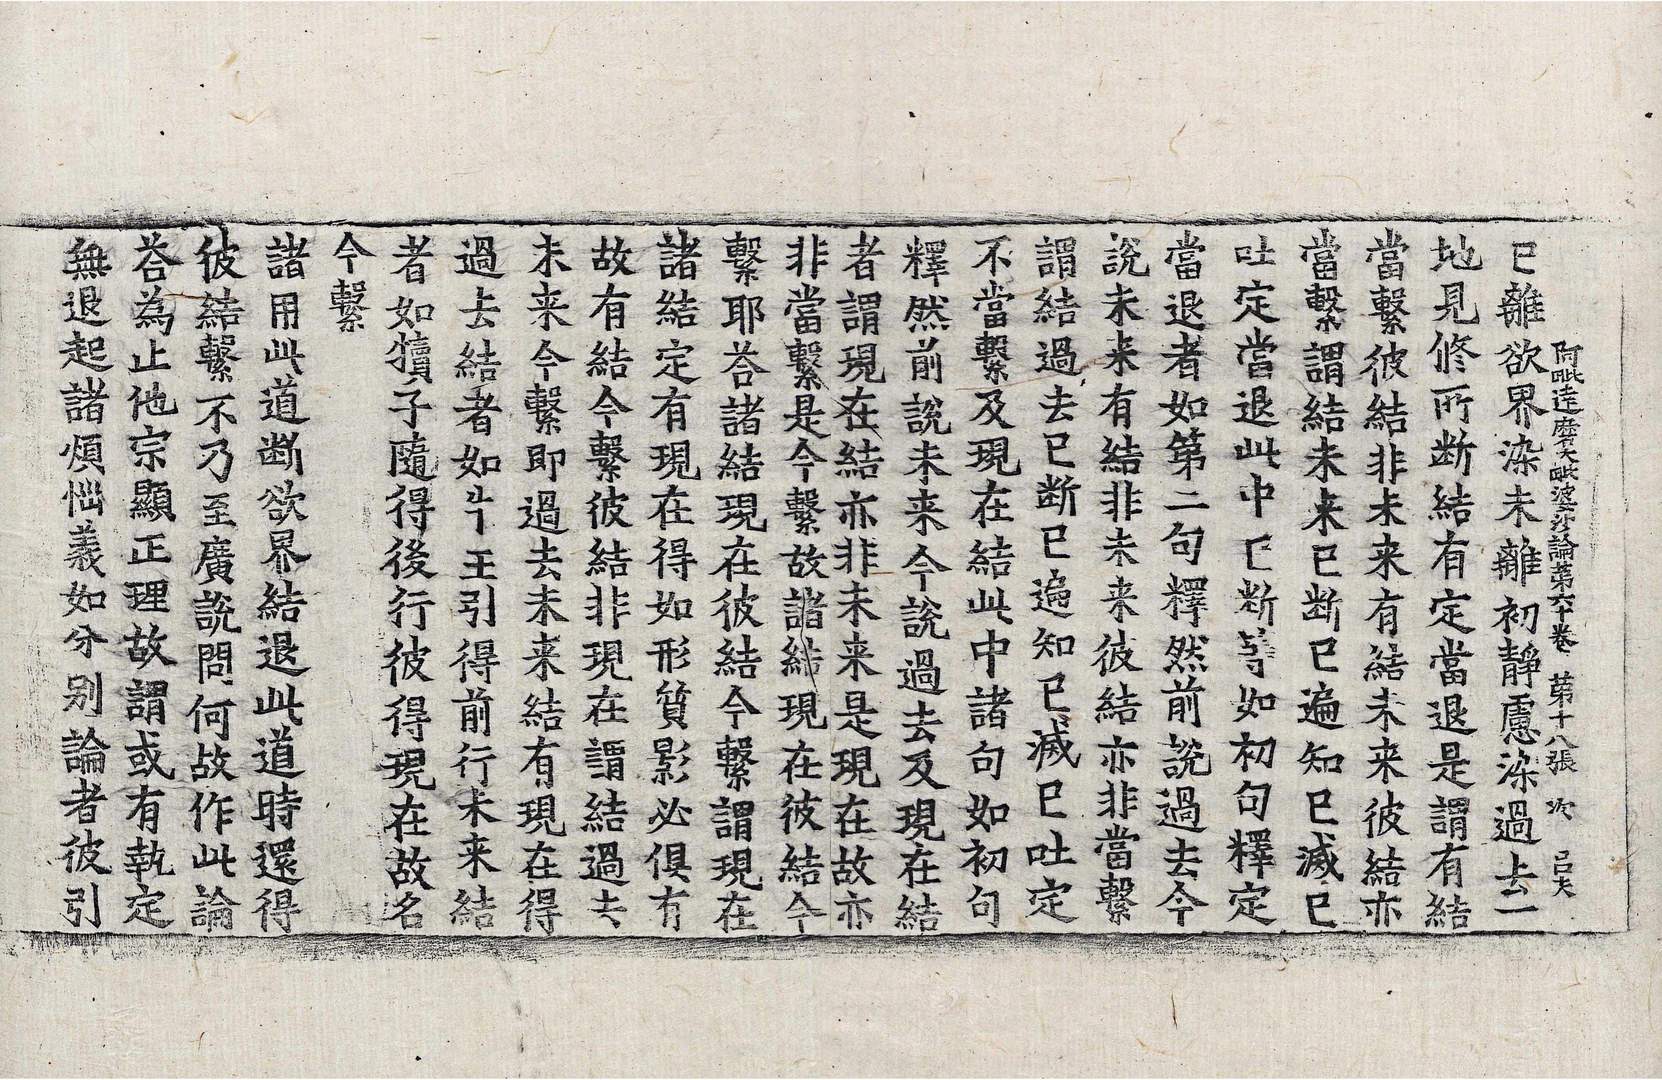 阿毗達磨大毗婆沙論第六十卷　第十八張　次　呂夫
已離欲界染未離初靜慮染過去二
地見修所斷結有定當退是謂有結
當繫彼結非未来有結未来彼結亦
當繫謂結未来已斷已遍知已滅已
吐定當退此中已斷等如初句釋定
當退者如第二句釋然前說過去今
說未来有結非未来彼結亦非當繫
謂結過去已斷已遍知已滅已吐定
不當繫及現在結此中諸句如初句
釋然前說未来今說過去及現在結
者謂現在結亦非未来是現在故亦
非當繫是今繫故諸結現在彼結今
繫耶荅諸結現在彼結今繫謂現在
諸結定有現在得如形質影必俱有
故有結今繫彼結非現在謂結過去
未来今繫即過去未来結有現在得
過去結者如牛王引得前行未来結
者如犢子隨得後行彼得現在故名
今繫
諸用此道斷欲界結退此道時還得
彼結繫不乃至廣說問何故作此論
荅為止他宗顯正理故謂或有執定
無退起諸煩惱義如分別論者彼引